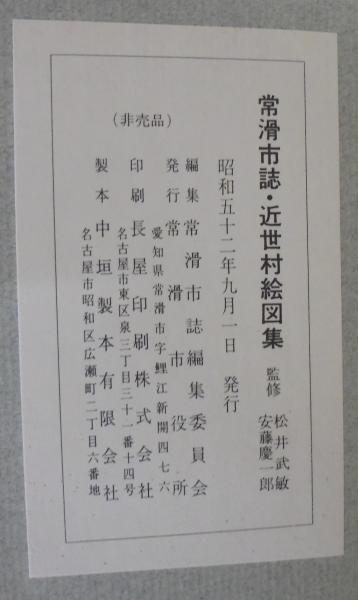 常滑市誌・近世村絵図集 監修 松井武敏
安藤慶一郎
昭和五十二年九月一日 発行
編集 常滑市誌編集委員会
発行 常滑市役所
愛知県常滑市字鯉江新開四七六
(非売品)
印刷 長屋印刷株式会社
名古屋市東区泉三丁目三十一番十四号
製本 中垣製本有限会社
名古屋市昭和区広瀬町二丁目六番地